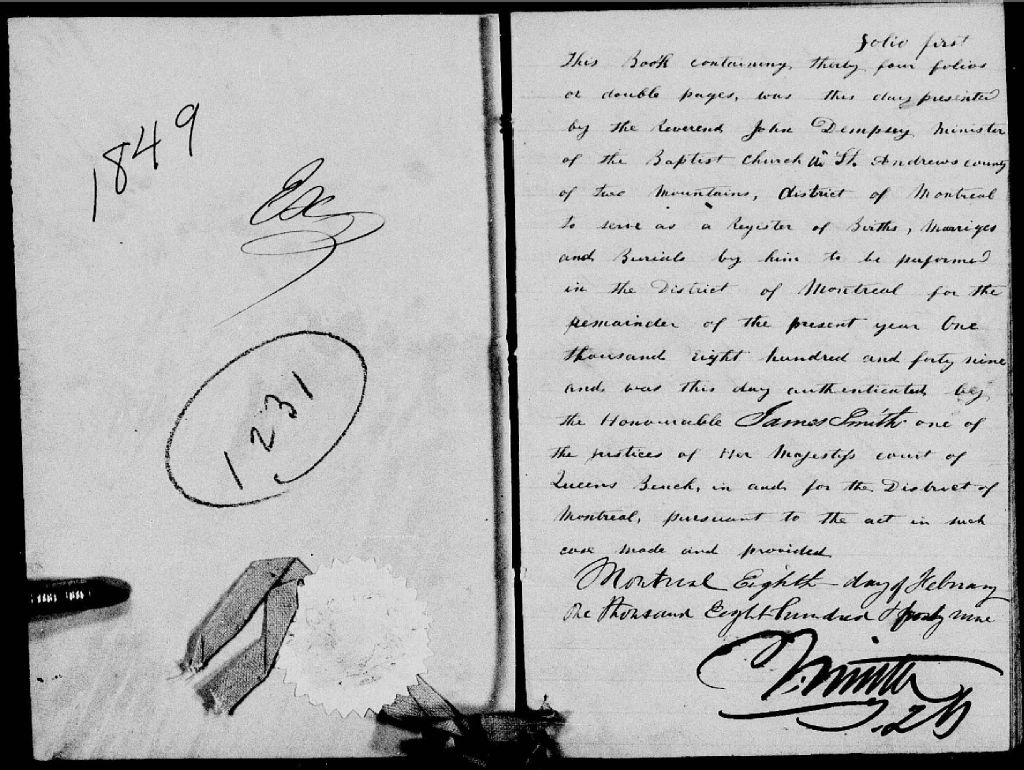 1849
Ex
1231
folio first
This Book containing thirty four folios
or double pages, was this day presented
by the Reverend John Dempsey Minister
of the Baptist Church in St. Andrews county
of two Mountains, district of Montreal
to serve as a Register of Births, Marriges
and Burials by him to be performed
in the District of Montreal for the
remainder of the present year One
thousand eight hundred and forty nine
and was this day authenticated by
the Honourable James Smith one of
the justices of Her Majestys court of
Queens Bench, in and for the District of
Montreal, pursuant to the act in such
case made and provided
Montreal Eighth day of February
One thousand Eight hundred & forty nine
J. Smith